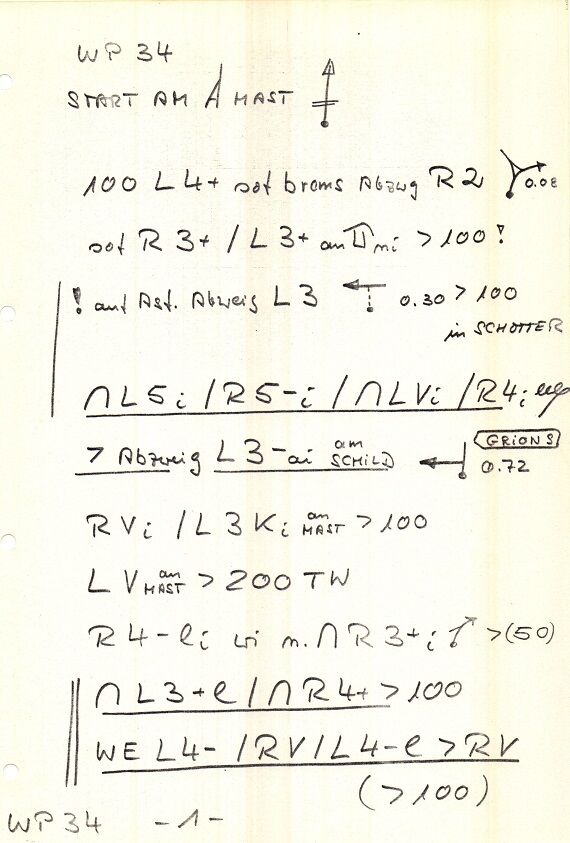 WP 34
START AM MAST
100 L4+ sof brems Abzwg R2 0.08
sof R3+ / L3+ an ni > 100 !
! auf Ast. Abweig L3 0.30 > 100
in SCHOTTER
∩L5i / R5-i / ∩LVi / R4i
> Abzweig L3-ai am SCHILD GRIONS 0.72
RVi / L3Ki an MAST > 100
LV an MAST > 200 TW
R4-ei wi n. ∩R3+i > (50)
∩L3+e / ∩R4+ > 100
WE L4- / RV / L4-e > RV
(> 100)
WP 34 -1-